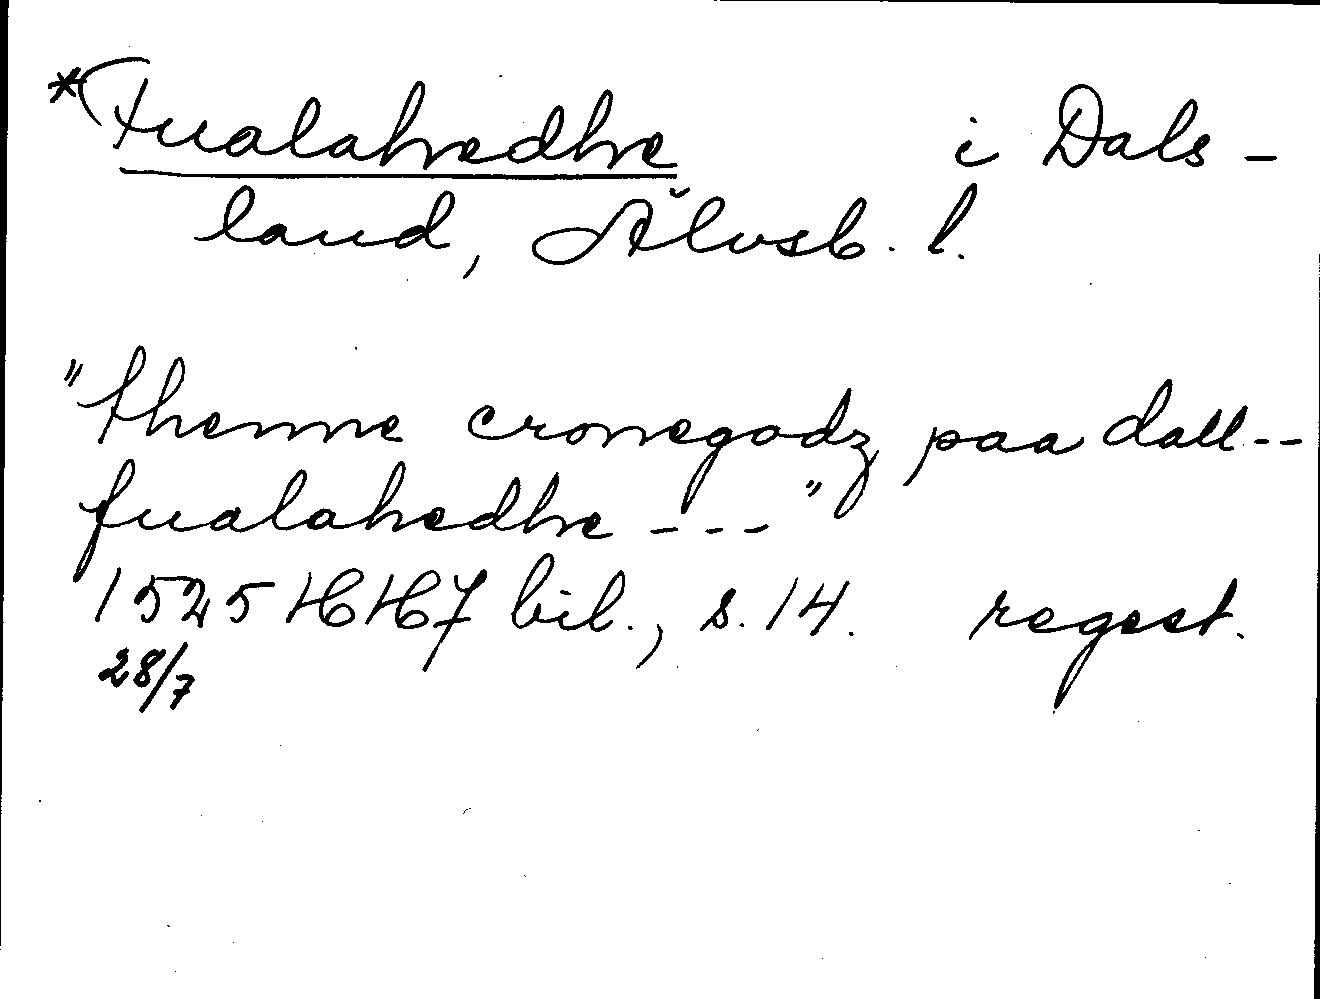 *Fualahedhe i Dals-
land, Älvsb. l.
"thenne cronegodz paa dall--
fualahedhe ---"
1525 HH 7 bil., s. 14. regest.
28/7